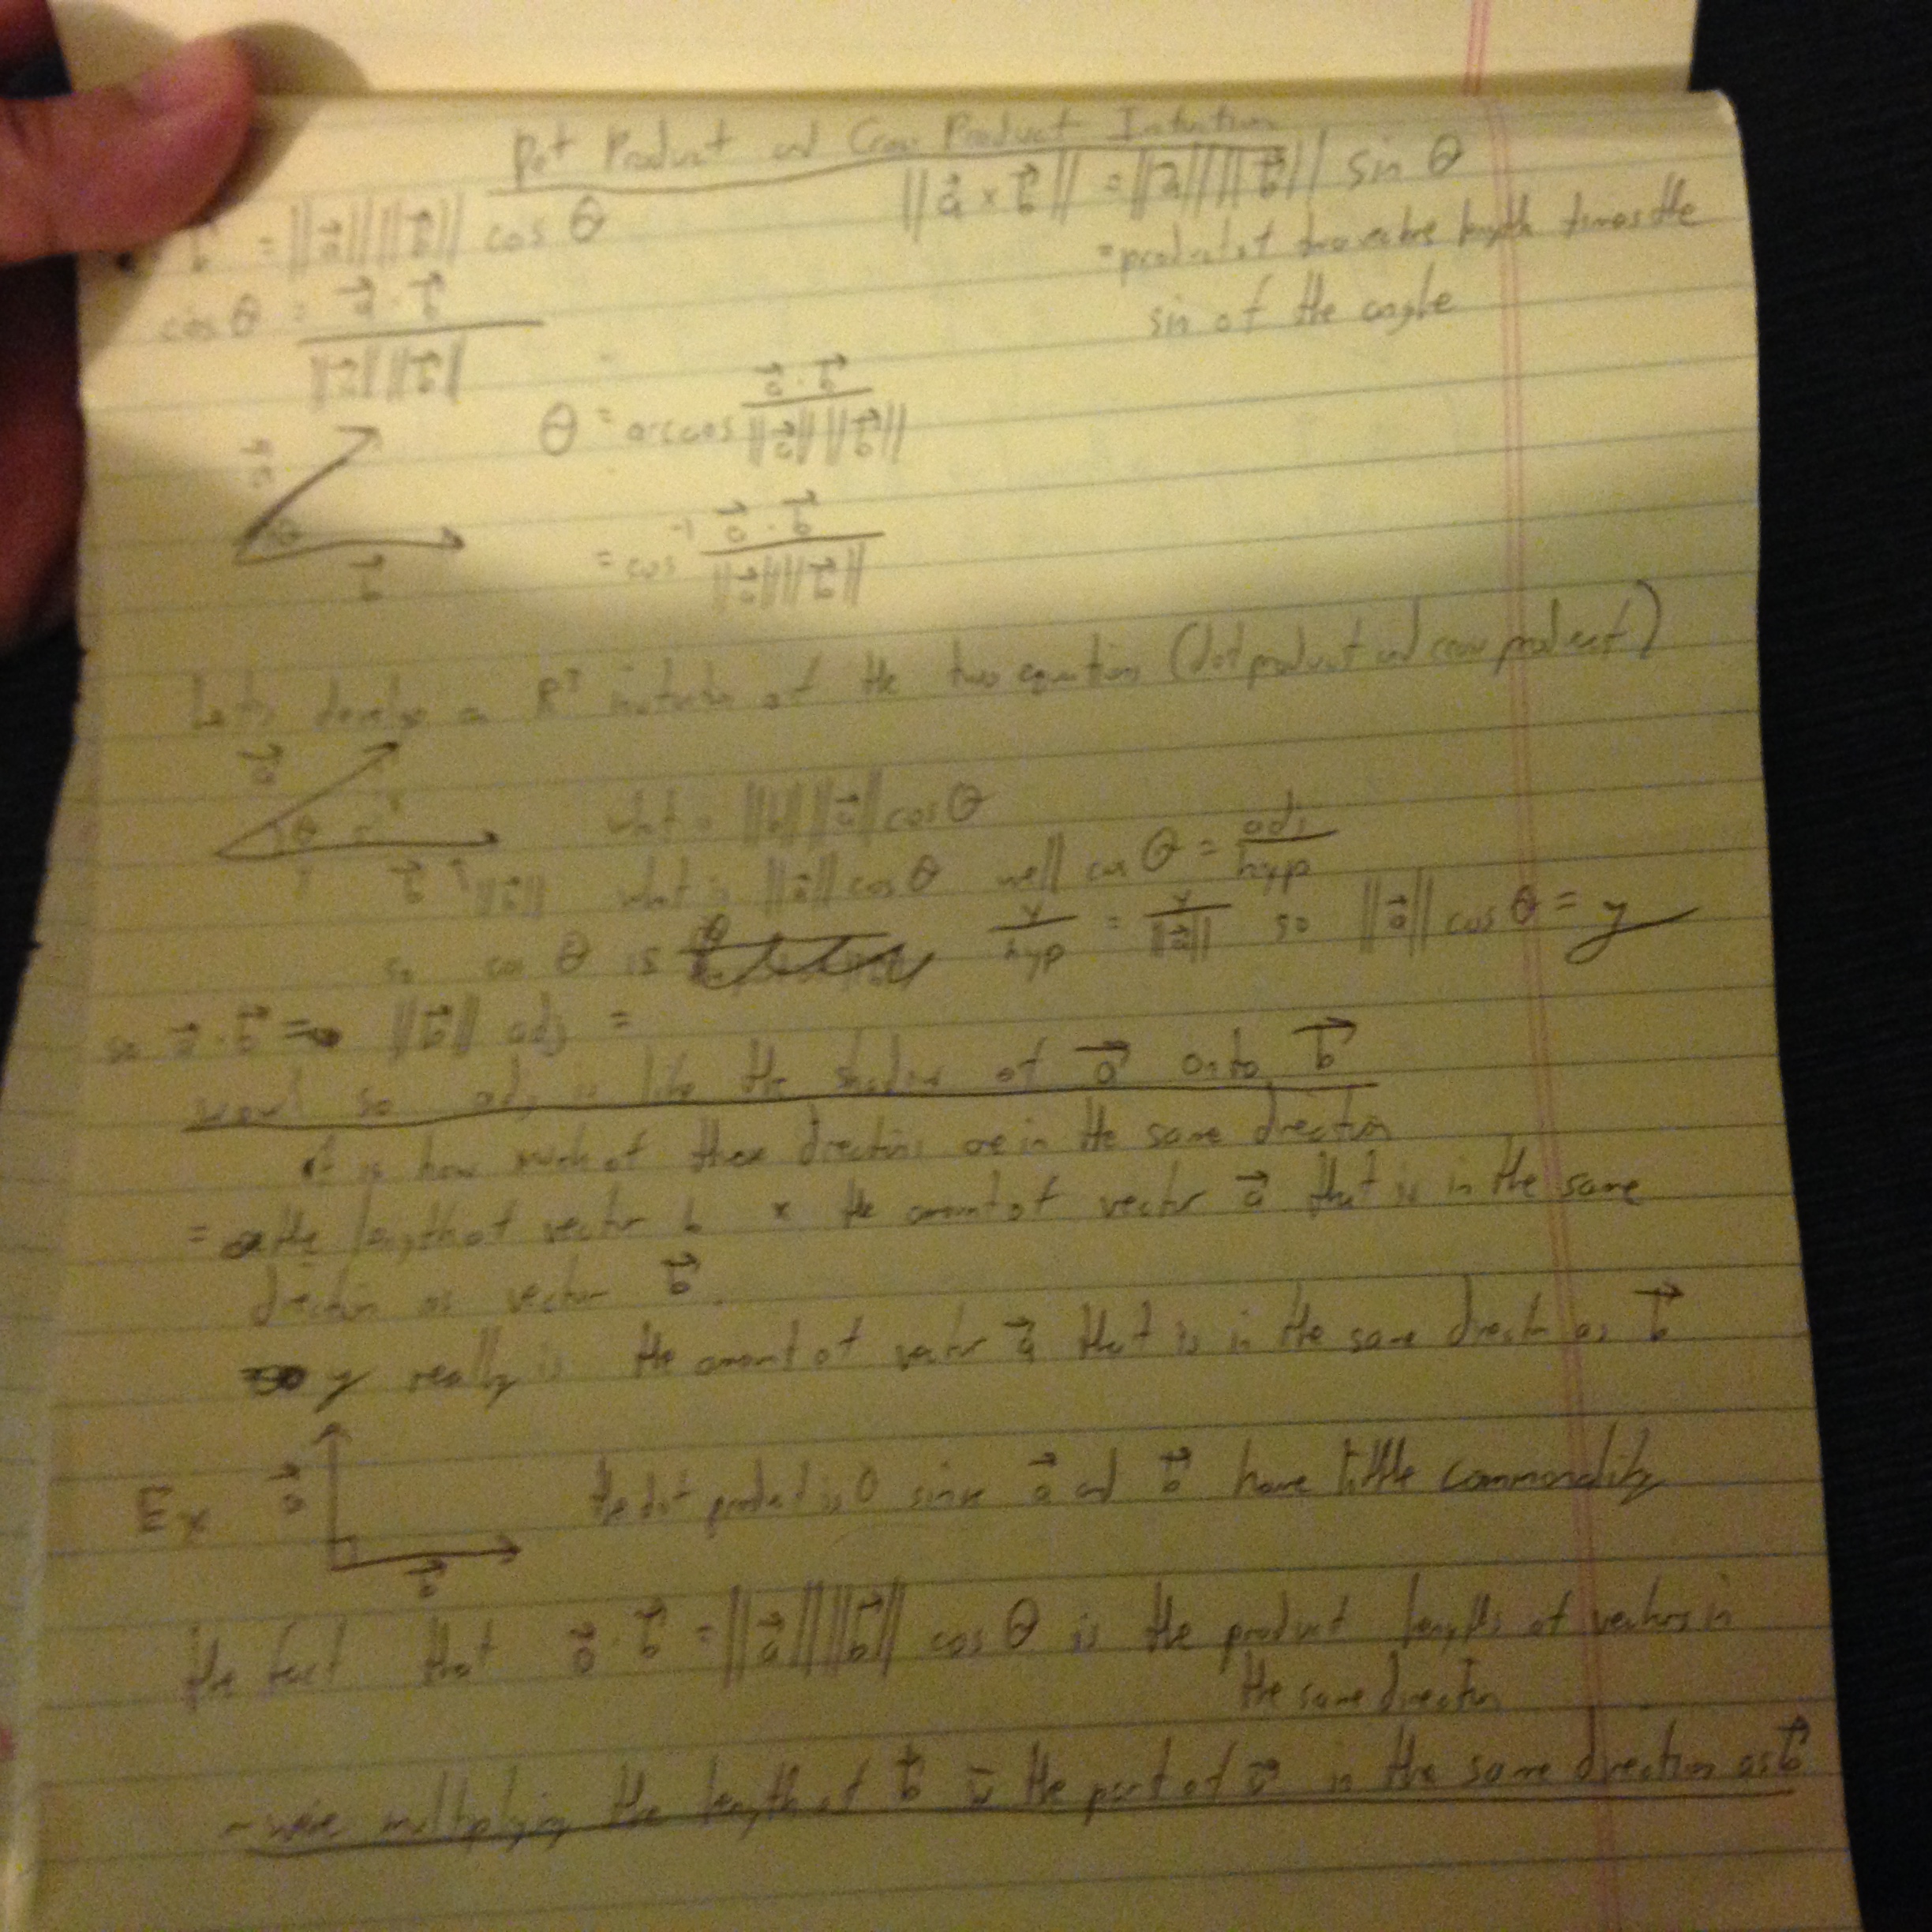 Dot Product and Cross Product Intuition
= ||a|| ||b|| cos θ
||a × b|| = ||a|| ||b|| sin θ
= product of how the length times the
sin of the angle
cos θ = a · b / ||a|| ||b||
θ = arccos a · b / ||a|| ||b||
= cos⁻¹ a · b / ||a|| ||b||
a
θ
b
Let's develop a intuition of the two equation (dot product and cross product)
a
θ
b
what is ||b|| ||a|| cos θ
what is ||a|| cos θ well cos θ = adj / hyp
||b||
so cos θ is y / hyp = y / ||a|| so ||a|| cos θ = y
so a · b = ||b|| adj =
so adj is like the shadow of a onto b
is how much of there directions are in the same direction
= the length of vector b x the amount of vector a that is in the same
direction as vector b
y really is the amount of vector a that is in the same direct as b
Ex a b
the dot product is 0 since a and b have little commonality
the fact that a · b = ||a|| ||b|| cos θ is the product lengths of vectors in
the same direction
- were multiplying the length of b w the part of a in the same direction as b